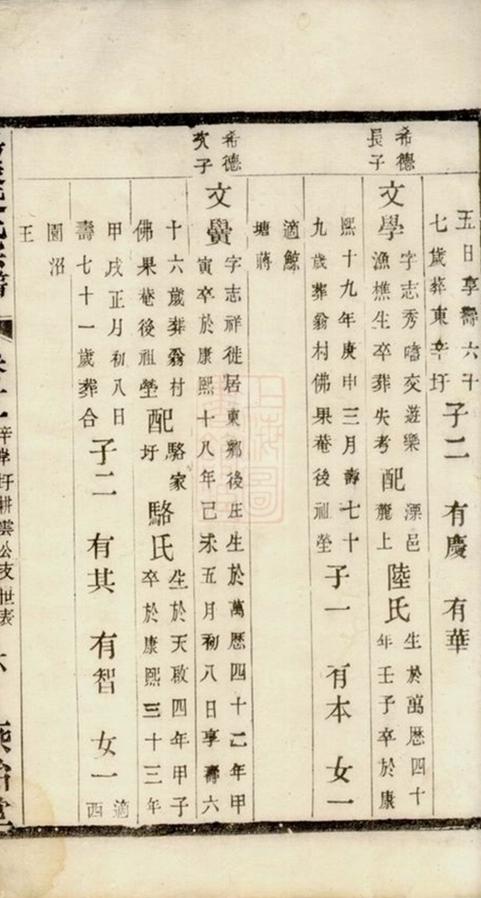 五日享壽六十
七歲葬東辛圩
子二 有慶 有華
希德
長子
文學
字志秀嗜交遊樂
漁樵生卒葬失考
配
溧邑
麓上
陸氏
生於萬歷四十
年壬子卒於康
熙十九年庚申三月壽七十
九歲葬翁村佛果菴後祖塋
子一 有本 女一
適鯨
塘蔣
希德
次子
文黌
字志祥徙居東鄉後庄生於萬歷四十二年甲
寅卒於康熙十八年己未五月初八日享壽六
十六歲葬翁村
佛果菴後祖塋
配
駱家
圩
駱氏
生於天啟四年甲子
卒於康熙三十三年
甲戌正月初八日
壽七十一歲葬合
子二 有其 有智 女一
適
西
園沼
王
圩耕雲公支世表